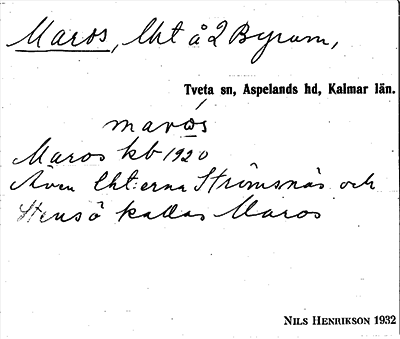 Maros, lht å 2 Byrum,
Tveta sn, Aspelands hd, Kalmar län.
maros
Maros kb 1920
Även lht:erna Strömsnäs och
Stensö kallas Maros
NILS HENRIKSON 1932